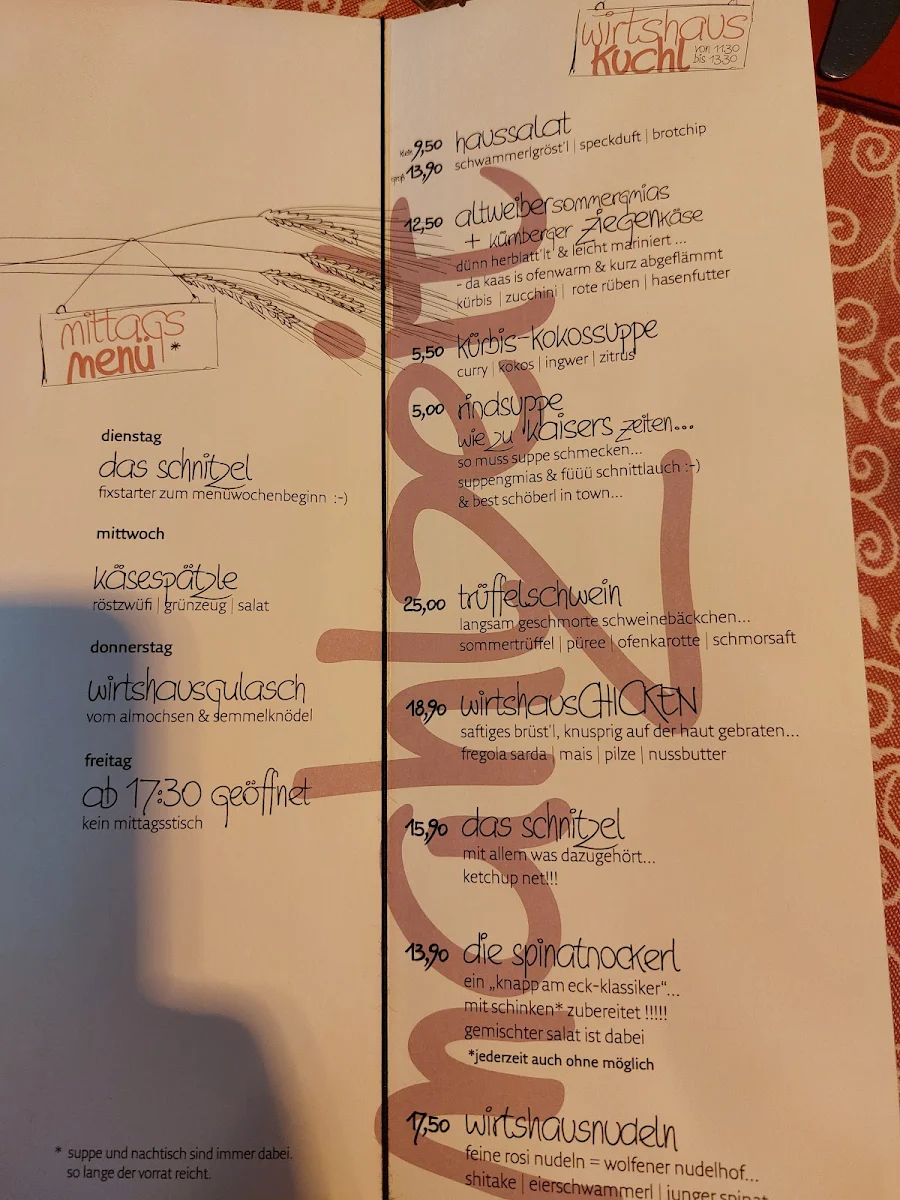 mittags
menü *
dienstag
das schnitzel
fixstarter zum menüwochenbeginn :-)
mittwoch
käsespätzle
röstzwüfi | grünzeug | salat
donnerstag
wirtshausgulasch
vom almochsen & semmelknödel
freitag
ab 17:30 geöffnet
kein mittagsstisch
* suppe und nachtisch sind immer dabei.
so lange der vorrat reicht.
mahlzeit
wirtshaus
kuchl von 11.30
bis 13.30
klein 9,50 haussalat
groß 13,90 schwammerlgröst'l | speckduft | brotchip
12,50 altweibersommergmias
+ kürnberger ziegenkäse
dünn herblatt'lt & leicht mariniert ...
- da kaas is ofenwarm & kurz abgeflämmt
kürbis | zucchini | rote rüben | hasenfutter
5,50 kürbis-kokossuppe
curry | kokos | ingwer | zitrus
5,00 rindsuppe
wie zu kaisers zeiten...
so muss suppe schmecken...
suppengmias & füüü schnittlauch :-)
& best schöberl in town...
25,00 trüffelschwein
langsam geschmorte schweinebäckchen...
sommertrüffel | püree | ofenkarotte | schmorsaft
18,90 wirtshausCHICKEN
saftiges brüst'l, knusprig auf der haut gebraten...
fregola sarda | mais | pilze | nussbutter
15,90 das schnitzel
mit allem was dazugehört...
ketchup net!!!
13,90 die spinatnockerl
ein „knapp am eck-klassiker“...
mit schinken* zubereitet !!!!!
gemischter salat ist dabei
*jederzeit auch ohne möglich
17,50 wirtshausnudeln
feine rosi nudeln = wolfener nudelhof...
shitake | eierschwammerl | junger spinat